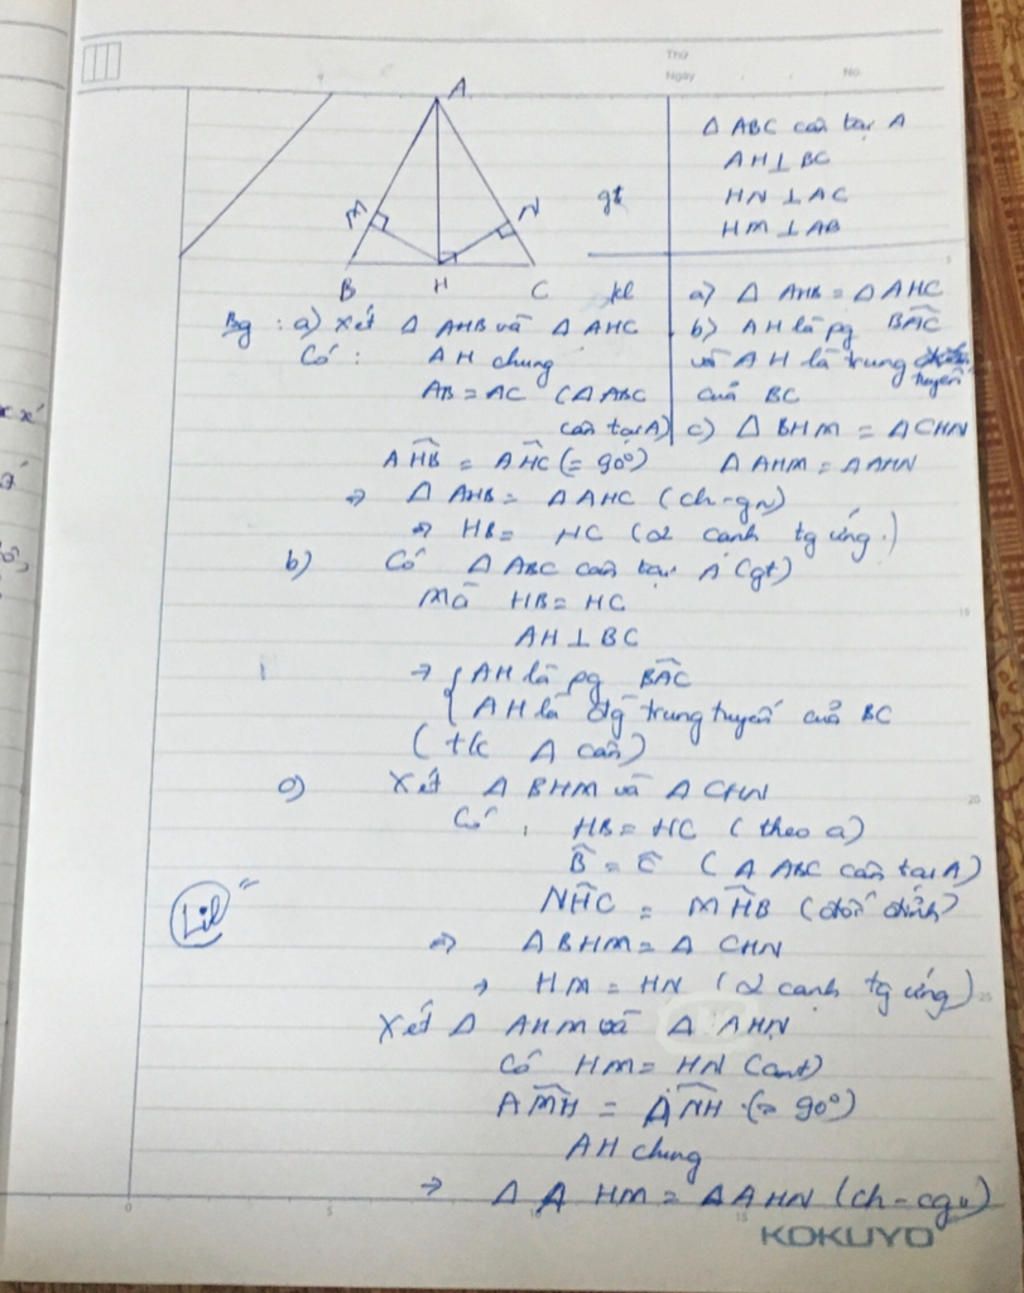 Thứ
Ngày . . No.
A
M
N
B H C
gt
Δ ABC cân tại A
AH ⊥ BC
HN ⊥ AC
HM ⊥ AB
kl
a) Δ AHB = Δ AHC
b) AH là pg BAC
và AH là trung tuyến
của BC
c) Δ BHM = Δ CHN
Δ AHM = Δ AHN
Bg : a) Xét Δ AHB và Δ AHC
Có : AH chung
AB = AC (Δ ABC
cân tại A)
AHB = AHC (= 90°)
⇒ Δ AHB = Δ AHC (ch - gn)
⇒ HB = HC (2 cạnh tg ứng.)
b) Có Δ ABC cân tại A (gt)
Mà HB = HC
AH ⊥ BC
→ { AH là pg BAC
AH là đg trung tuyến của BC
(t/c Δ cân)
c) Xét Δ BHM và Δ CHN
Có : HB = HC (theo a)
B = C (Δ ABC cân tại A)
NHC = MHB (đối đỉnh)
⇒ Δ BHM = Δ CHN
→ HM = HN (2 cạnh tg ứng)
Xét Δ AHM và Δ AHN
Có HM = HN (cmt)
AMH = ANH (= 90°)
AH chung
→ Δ AHM = Δ AHN (ch - cgv)
Lil
0 5 10 15
KOKUYO